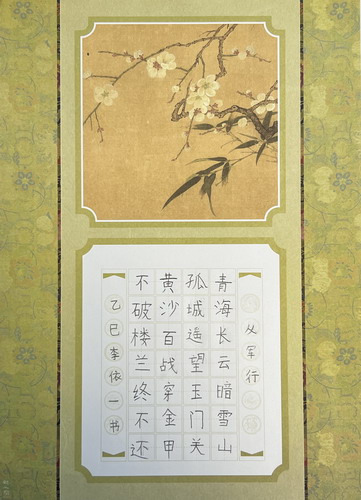 从军行
青海长云暗雪山
孤城遥望玉门关
黄沙百战穿金甲
不破楼兰终不还
乙巳李依一书